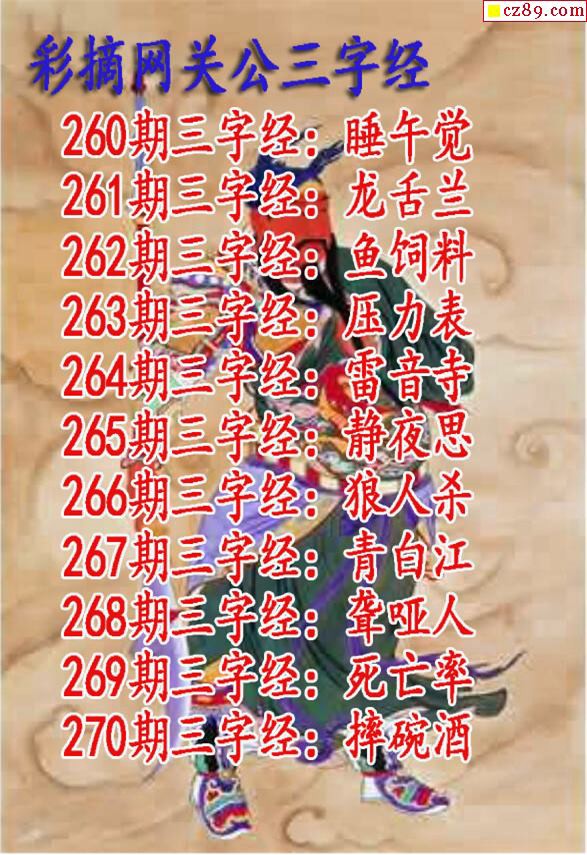 cz89.com
彩摘网关公三字经
260期三字经：睡午觉
261期三字经：龙舌兰
262期三字经：鱼饲料
263期三字经：压力表
264期三字经：雷音寺
265期三字经：静夜思
266期三字经：狼人杀
267期三字经：青白江
268期三字经：聋哑人
269期三字经：死亡率
270期三字经：摔碗酒